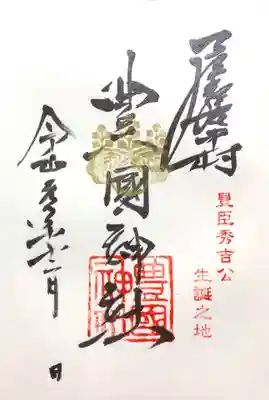 尾張中村
豊臣秀吉公
生誕之地
豊國神社
豊國神社
令和元年
日